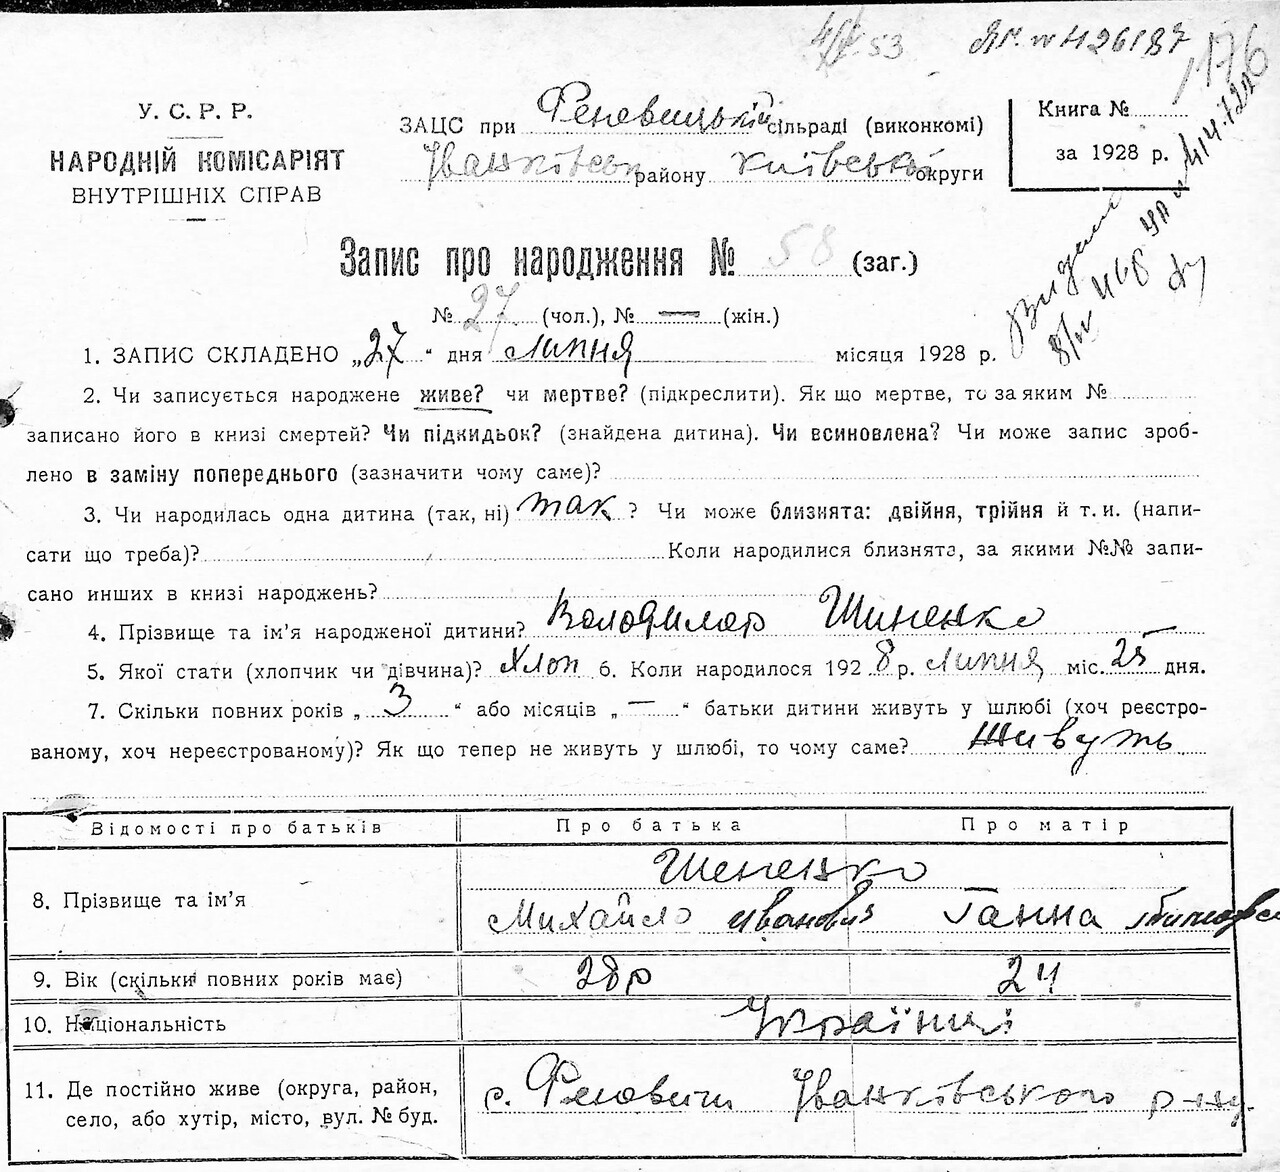 53 № 426187 176
У. С. Р. Р.
НАРОДНІЙ КОМІСАРІЯТ
ВНУТРІШНІХ СПРАВ
ЗАЦС при Феневицькій сільраді (виконкомі)
Іванківськ району Київської округи
Книга №
за 1928 р.
Запис про народження № 58 (заг.)
№ 27 (чол.), № — (жін.)
1. ЗАПИС СКЛАДЕНО „27“ дня липня місяця 1928 р.
2. Чи записується народжене живе? чи мертве? (підкреслити). Як що мертве, то за яким №
записано його в книзі смертей? Чи підкидьок? (знайдена дитина). Чи всиновлена? Чи може запис зроб-
лено в заміну попереднього (зазначити чому саме)?
3. Чи народилась одна дитина (так, ні) так ? Чи може близнята: двійня, трійня й т. и. (напи-
сати що треба)? Коли народилися близнята, за якими №№ запи-
сано инших в книзі народжень?
4. Прізвище та ім’я народженої дитини? Володимер Шиненко
5. Якої стати (хлопчик чи дівчина)? Хлоп 6. Коли народилося 1928 р. липня міс. 25 дня.
7. Скільки повних років „ 3 “ або місяців „ — “ батьки дитини живуть у шлюбі (хоч реєстро-
ваному, хоч нереєстрованому)? Як що тепер не живуть у шлюбі, то чому саме? Живуть
Відомості про батьків Про батька Про матір
8. Прізвище та ім’я Шененко
Михайло Иванович Ганна
9. Вік (скільки повних років має) 28 р 24
10. Національність Українці
11. Де постійно живе (округа, район,
село, або хутір, місто, вул. № буд.
с. Феневичи Іванківського р-ну.